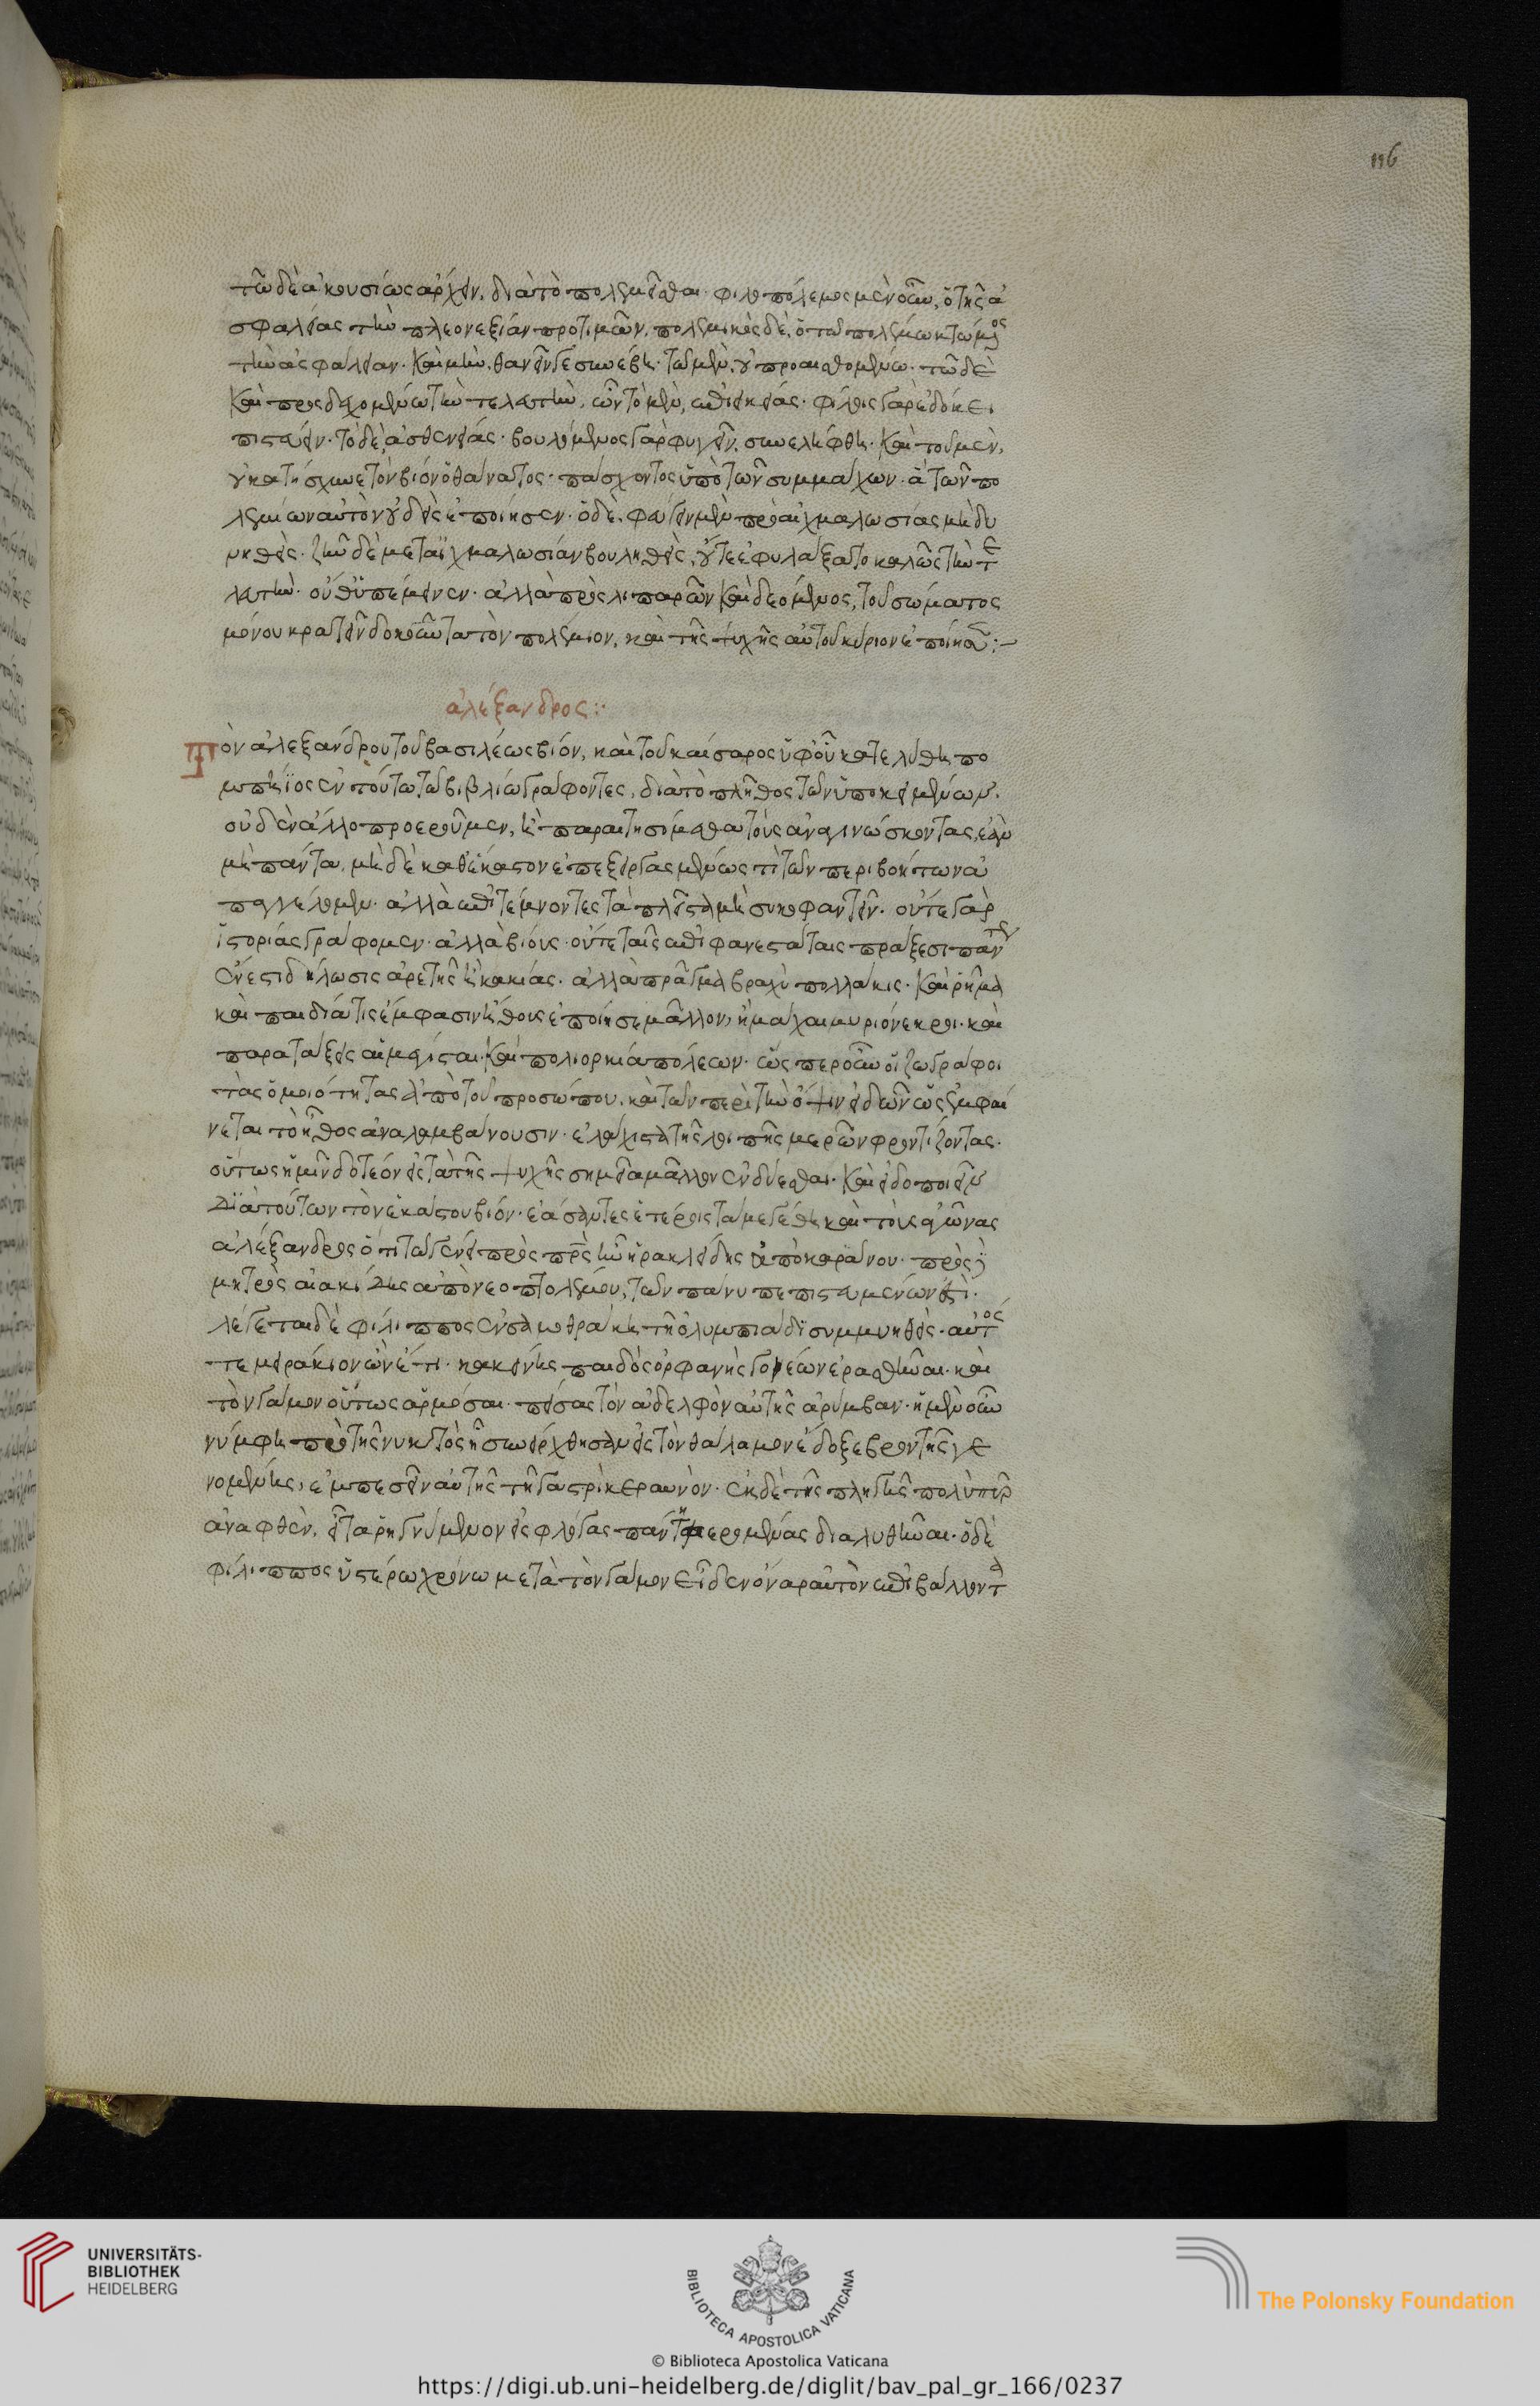 τῶ δὲ ἀκουσίως ἄρχειν, διὰ τὸ πολεμεῖσθαι· φιλοπόλεμος μὲν οὖν, ὁ τῆς ἀ
σφαλείας τὴν πλεονεξίαν προτιμῶν. πολεμικὸς δὲ, ὁ τῶ πολέμω κτώμενος
τὴν ἀσφάλειαν· καὶ μὴν, θανεῖν γε συνέβη· τῶ μὲν, οὐ προαισθομένω· τῶ δὲ
καὶ προσδεχομένω τὴν τελευτὴν, ὧν τὸ μὲν, ἐπιεικείας· φίλοις γὰρ ἐδόκει
πιστεύειν· τὸ δὲ, ἀσθενείας· βουλόμενος γὰρ φυγεῖν, συνελήφθη· καὶ τοῦ μὲν,
οὐ κατήσχυνε τὸν βίον ὁ θάνατος· πάσχοντος ὑπὸ τῶν συμμάχων· ἃ τῶν πο
λεμίων αὐτὸν οὐδεὶς ἐποίησεν· ὁ δὲ, φεύγειν μὲν πρὸ αἰχμαλωσίας μὴ δυ
νηθεὶς· ζῆν δὲ μετ' αἰχμαλωσίαν βουληθεὶς, οὔτε ἐφυλάξατο καλῶς τὴν τε
λευτὴν· οὔθ' ὑπέμεινεν· ἀλλὰ προσλιπαρῶν καὶ δεόμενος, τοῦ σώματος
μόνου κρατεῖν δοκοῦντα τὸν πολέμιον, καὶ τῆς ψυχῆς αὐτοῦ κύριον ἐποίησεν:-
ἀλέξανδρος:·
Τὸν ἀλεξάνδρου τοῦ βασιλέως βίον, καὶ τοῦ καίσαρος ὑφ' οὗ κατελύθη πο
μπήϊος ἐν τούτω τῶ βιβλίω γράφοντες, διὰ τὸ πλῆθος τῶν ὑποκειμένων.
οὐδὲν ἄλλο προεροῦμεν, ἢ παραιτησόμεθα τοὺς ἀναγινώσκοντας, ἐὰν
μὴ πάντα, μηδὲ καθ' ἕκαστον ἐπεξειργασμένως τὶ τῶν περιβοήτων ἀ
παγγέλλομεν· ἀλλὰ ἐπιτέμνοντες τὰ πλεῖστα μὴ συκοφαντεῖν· οὔτε γὰρ
ἱστορίας γράφομεν· ἀλλὰ βίους· οὔτε ταῖς ἐπιφανεστάταις πράξεσι πάντως
ἔνεστι δήλωσις ἀρετῆς ἢ κακίας· ἀλλὰ πρᾶγμα βραχὺ πολλάκις· καὶ ῥῆμα
καὶ παιδιά τις ἔμφασιν ἤθους ἐποίησε μᾶλλον, ἢ μάχαι μυριόνεκροι· καὶ
παρατάξεις αἱ μέγισται· καὶ πολιορκία πόλεων· ὥσπερ οὖν οἱ ζωγράφοι
τὰς ὁμοιότητας ἀπὸ τοῦ προσώπου, καὶ τῶν περὶ τὴν ὄψιν εἰδῶν οἷς ἐμφαί
νεται τὸ ἦθος ἀναλαμβάνουσιν· ἐλάχιστα τῆς λοιπῆς μερῶν φροντίζοντας·
οὕτως ἡμῖν δοτέον εἰς τὰ τῆς ψυχῆς σημεῖα μᾶλλον ἐνδύεσθαι· καὶ εἰδοποιεῖν
διὰ τούτων τὸν ἑκάστου βίον· ἐάσαντες ἑτέροις τὰ μεγέθη καὶ τοὺς ἀγῶνας
ἀλέξανδρος ὅτι τῶ γένει πρὸς πρς ἦν ἡρακλείδης ἀπὸ καράνου· πρὸς δὲ
μητρὸς αἰακίδης ἀπὸ νεοπτολέμου, τῶν πάνυ πεπιστευμένων ἐστὶ·
λέγεται δὲ φίλιππος ἐν σαμοθράκη τῆ ὀλυμπιάδι συμμυηθεὶς· αὐτός
τε μειράκιον ὢν ἔτι· κἀκείνης παιδὸς ὀρφανῆς γονέων ἐρασθῆναι· καὶ
τὸν γάμον οὕτως ἁρμόσαι· πείσας τὸν ἀδελφὸν αὐτῆς ἀρύμβαν· ἡ μὲν οὖν
νύμφη πρὸ τῆς νυκτὸς ἧ συνείρχθησαν εἰς τὸν θάλαμον ἔδοξε βροντῆς γε
νομένης, ἐμπεσεῖν αὐτῆς τῆ γαστρὶ κεραυνὸν· ἐκ δὲ τῆς πληγῆς πολὺ πῦρ
ἀναφθὲν, εἶτα ῥηγνύμενον εἰς φλόγας πάντη φερομένας διαλυθῆναι· ὁ δὲ
φίλιππος ὑστέρω χρόνω μετὰ τὸν γάμον εἶδεν ὄναρ αὑτὸν ἐπιβάλλοντα
UNIVERSITÄTS-
BIBLIOTHEK
HEIDELBERG
BIBLIOTECA APOSTOLICA VATICANA
The Polonsky Foundation
© Biblioteca Apostolica Vaticana
https://digi.ub.uni-heidelberg.de/diglit/bav_pal_gr_166/0237